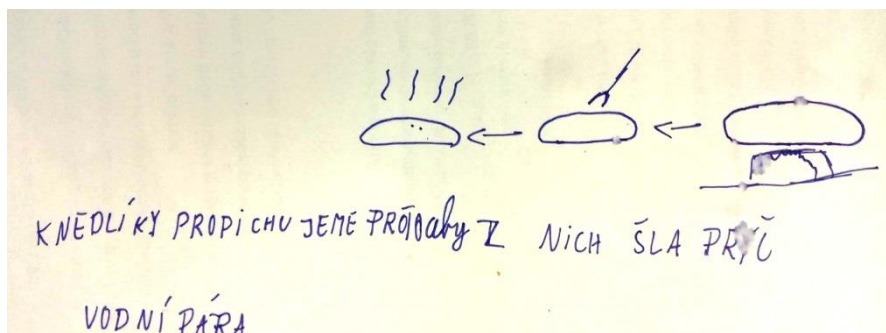 KNEDLÍKY PROPICHUJEME PROTO aby Z NICH ŠLA PRYČ
VODNÍ PÁRA